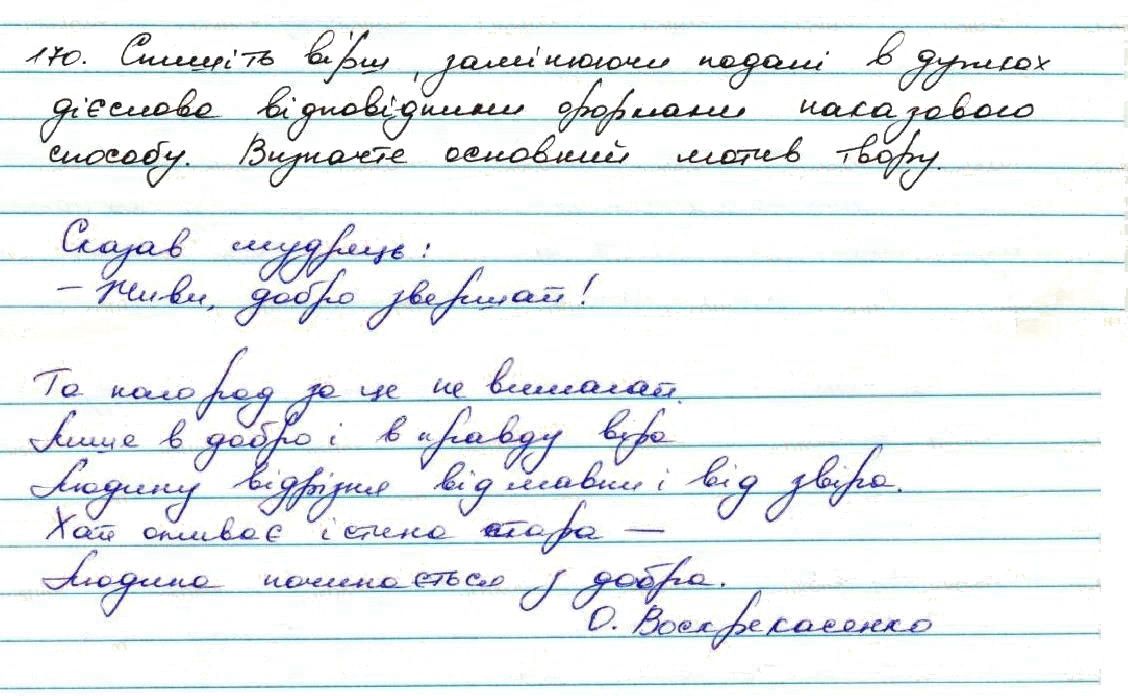 170. Спишіть вірш, замінюючи подані в дужках
дієслова відповідними формами наказового
способу. Визначте основний мотив твору.
Сказав мудрець:
– Живи, добро звершай!
Та нагород за це не вимагай.
Лише в добро і в правду віра
Людину відрізня від мавпи і від звіра.
Хай оживає істина стара —
Людина починається з добра.
О. Воскрекасенко